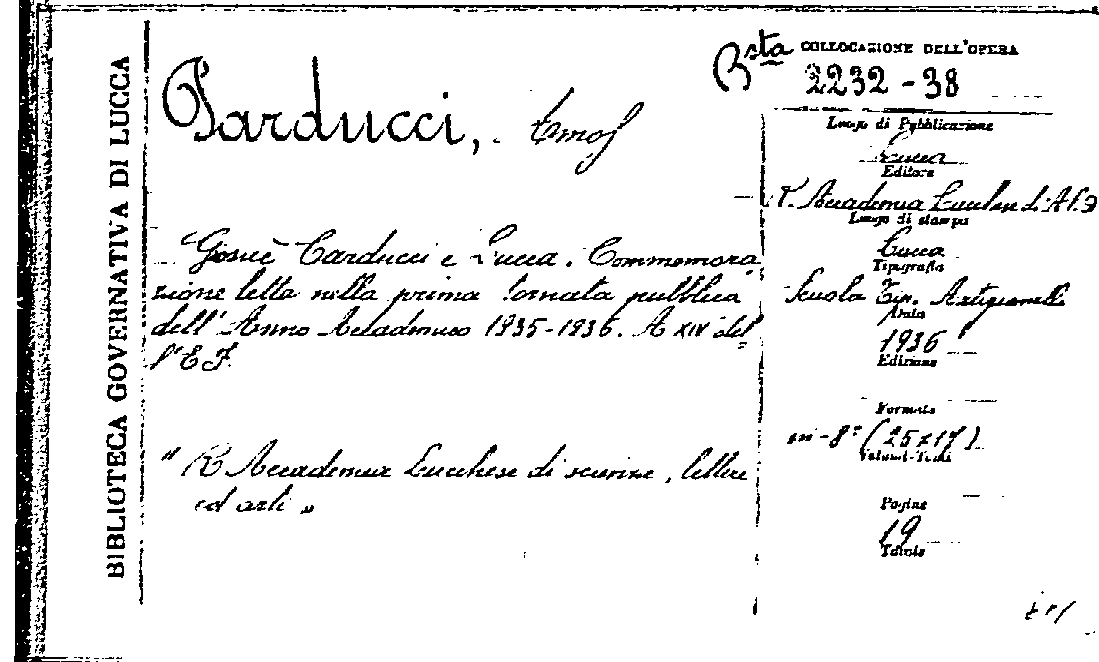 BIBLIOTECA GOVERNATIVA DI LUCCA
Parducci, Amos
Giosuè Carducci e Lucca. Commemora
zione letta nella prima tornata pubblica
dell'Anno Accademico 1935-1936. A XIV del=
l'E F.
" R Accademia Lucchese di scienze, lettere
ed arti "
Bsta COLLOCAZIONE DELL'OPERA
2232-38
Luogo di Pubblicazione
Lucca
Editore
R. Accademia Lucchese di
Luogo di stampa
Lucca
Tipografia
Scuola Tip. Artigianelli
Data
1936
Edizione
Formato
in-8° (25x17)
Volumi-Tomi
Pagine
19
Tavole